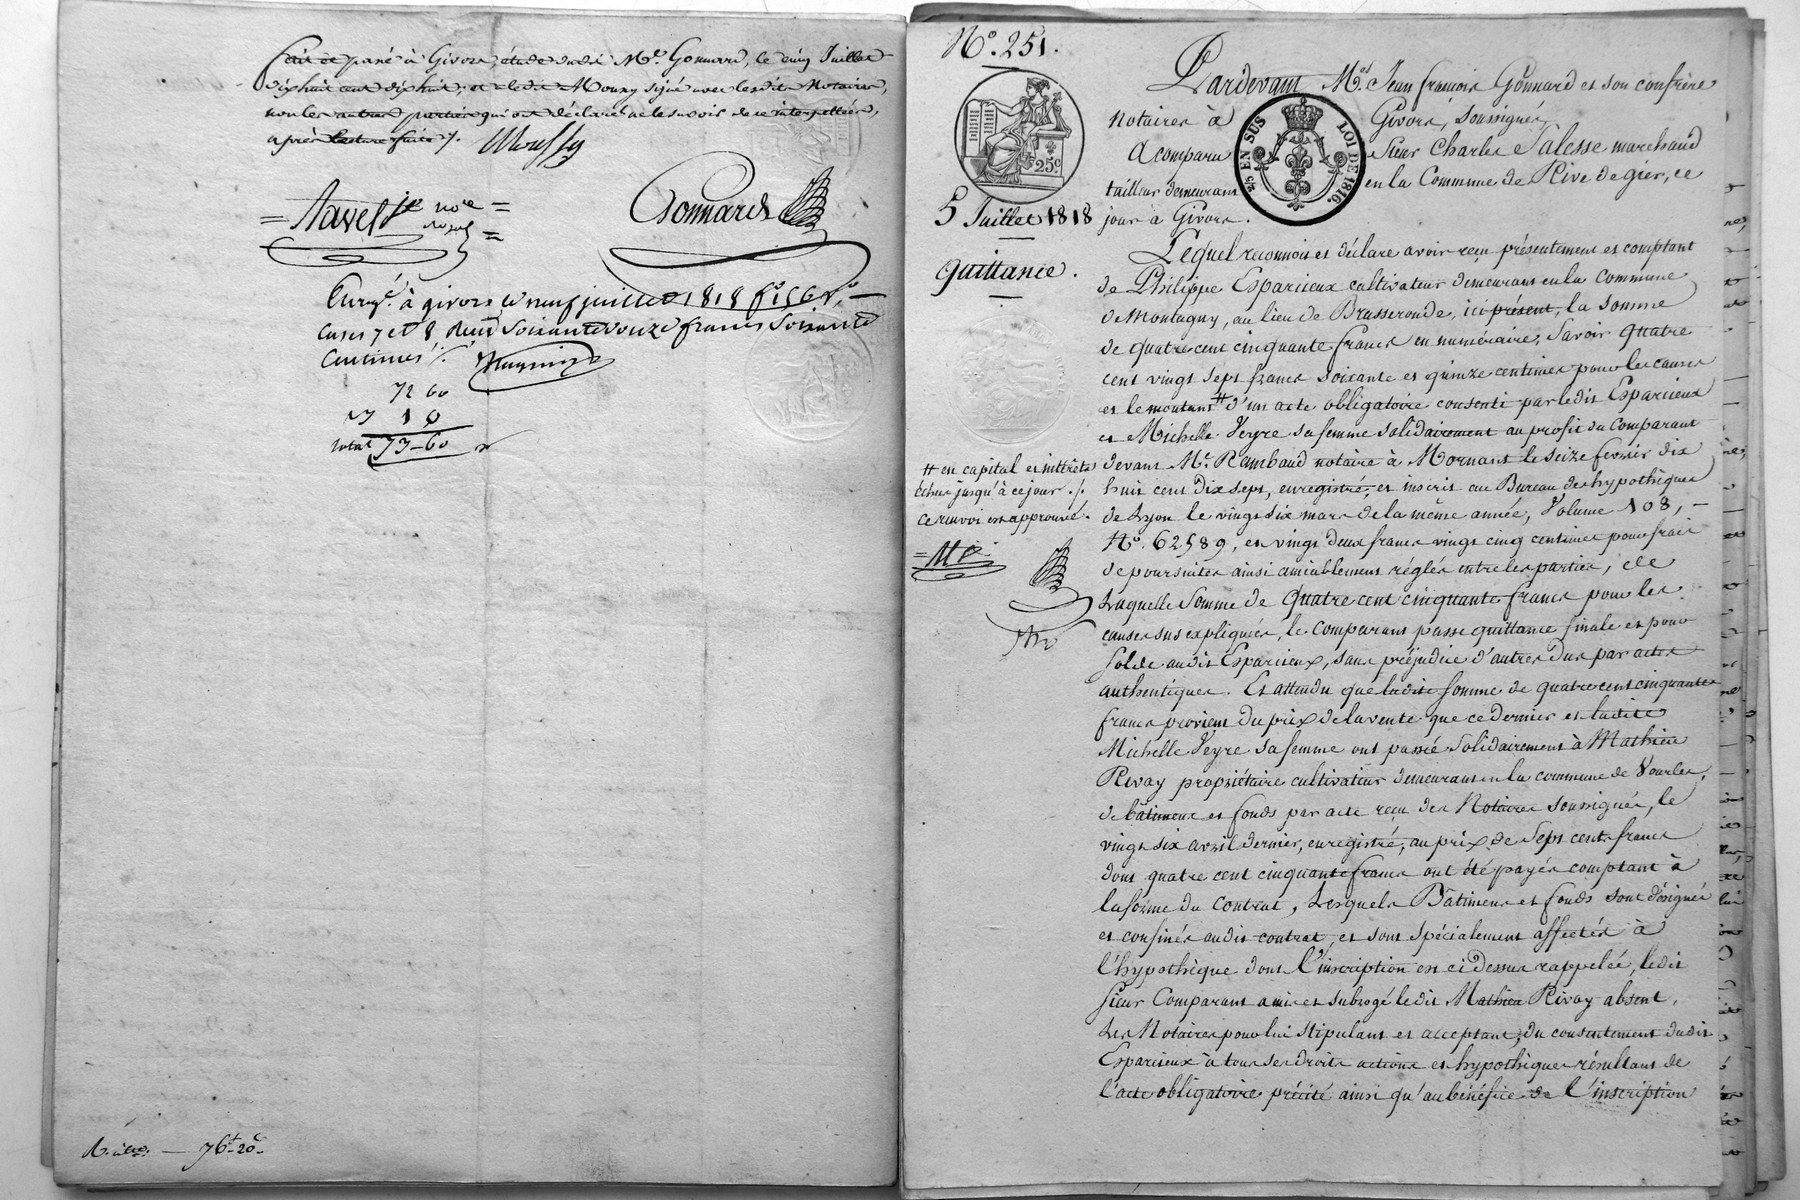 fait et passé à Givors, étude dudit Me. Gonnard, le cinq Juillet
dix huit cent dix huit, et ledit Moussy signé avec lesdits Notaires,
non les autres parties qui ont déclaré ne le savoir de ce interpellées,
après lecture faite ./.
Moussy
= Navel je nore =
royal =
Gonnard
Enregé. à givors le neuf juillet 1818 fo. 156 Vo. —
Cases 7 et 8 Reçu soixante douze francs soixante
Centimes ./.
72 60
1 0
total 73-60
76f 20c
No. 251.
5 Juillet 1818
Quittance.
25c.
25c. EN SUS
LOI DE 1816.
Pardevant Mes. Jean françois Gonnard et son confrère
notaires à Givors, soussignés,
A comparu Sieur Charles Salesse marchand
tailleur demeurant en la Commune de Rive de gier, ce
jour à Givors.
Lequel reconnoit et déclare avoir reçu présentement et comptant
de Philippe Esparcieux cultivateur demeurant en la Commune
de Montagny, au lieu de Brasseronde, ici présent, la somme
de quatre cent cinquante francs en numéraire, Savoir quatre
cent vingt sept francs soixante et quinze centimes pour les causes
et le montant # d'un acte obligatoire consenti par ledit Esparcieux
et Michelle Veyre sa femme solidairement au profit du Comparant
devant Me. Rambaud notaire à Mornant le seize fevrier dix
huit cent dix sept, enregistré, et inscrit au Bureau des hypothèques
de Lyon le vingt six mars de la même année, Volume 108, —
No. 62589, et vingt deux francs vingt cinq centimes pour frais
de poursuites ainsi amiablement réglés entre les parties, de
Laquelle Somme de Quatre cent cinquante francs pour les
causes sus expliquées, le Comparant passe quittance finale et pour
Solde audit Esparcieux, sans préjudice d'autres dus par actes
authentiques. Et attendu que ladite somme de quatre cent cinquante
francs provient du prix de la vente que ce dernier et ladite
Michelle Veyre sa femme ont passée solidairement à Mathieu
Rivay propriétaire cultivateur demeurant en la commune de Vourles,
de bâtimens et fonds par acte reçu des Notaires soussignés, le
vingt six avril dernier, enregistré, au prix de Sept cents francs
dont quatre cent cinquante francs ont été payés comptant à
la forme du Contrat, Lesquels Bâtimens et fonds sont désignés
et confinés audit contrat, et sont spécialement affectés à
l'hypothèque dont l'inscription est ci dessus rappelée, ledit
Sieur Comparant a mis et subrogé ledit Mathieu Rivay absent,
Les Notaires pour lui stipulant et acceptant, du consentement dudit
Esparcieux à tous ses droits actions et hypothèques résultant de
l'acte obligatoire précité ainsi qu'au bénéfice de l'inscription
# en capital et intérêts
échus jusqu'à ce jour ./.
ce renvoi est approuvé.